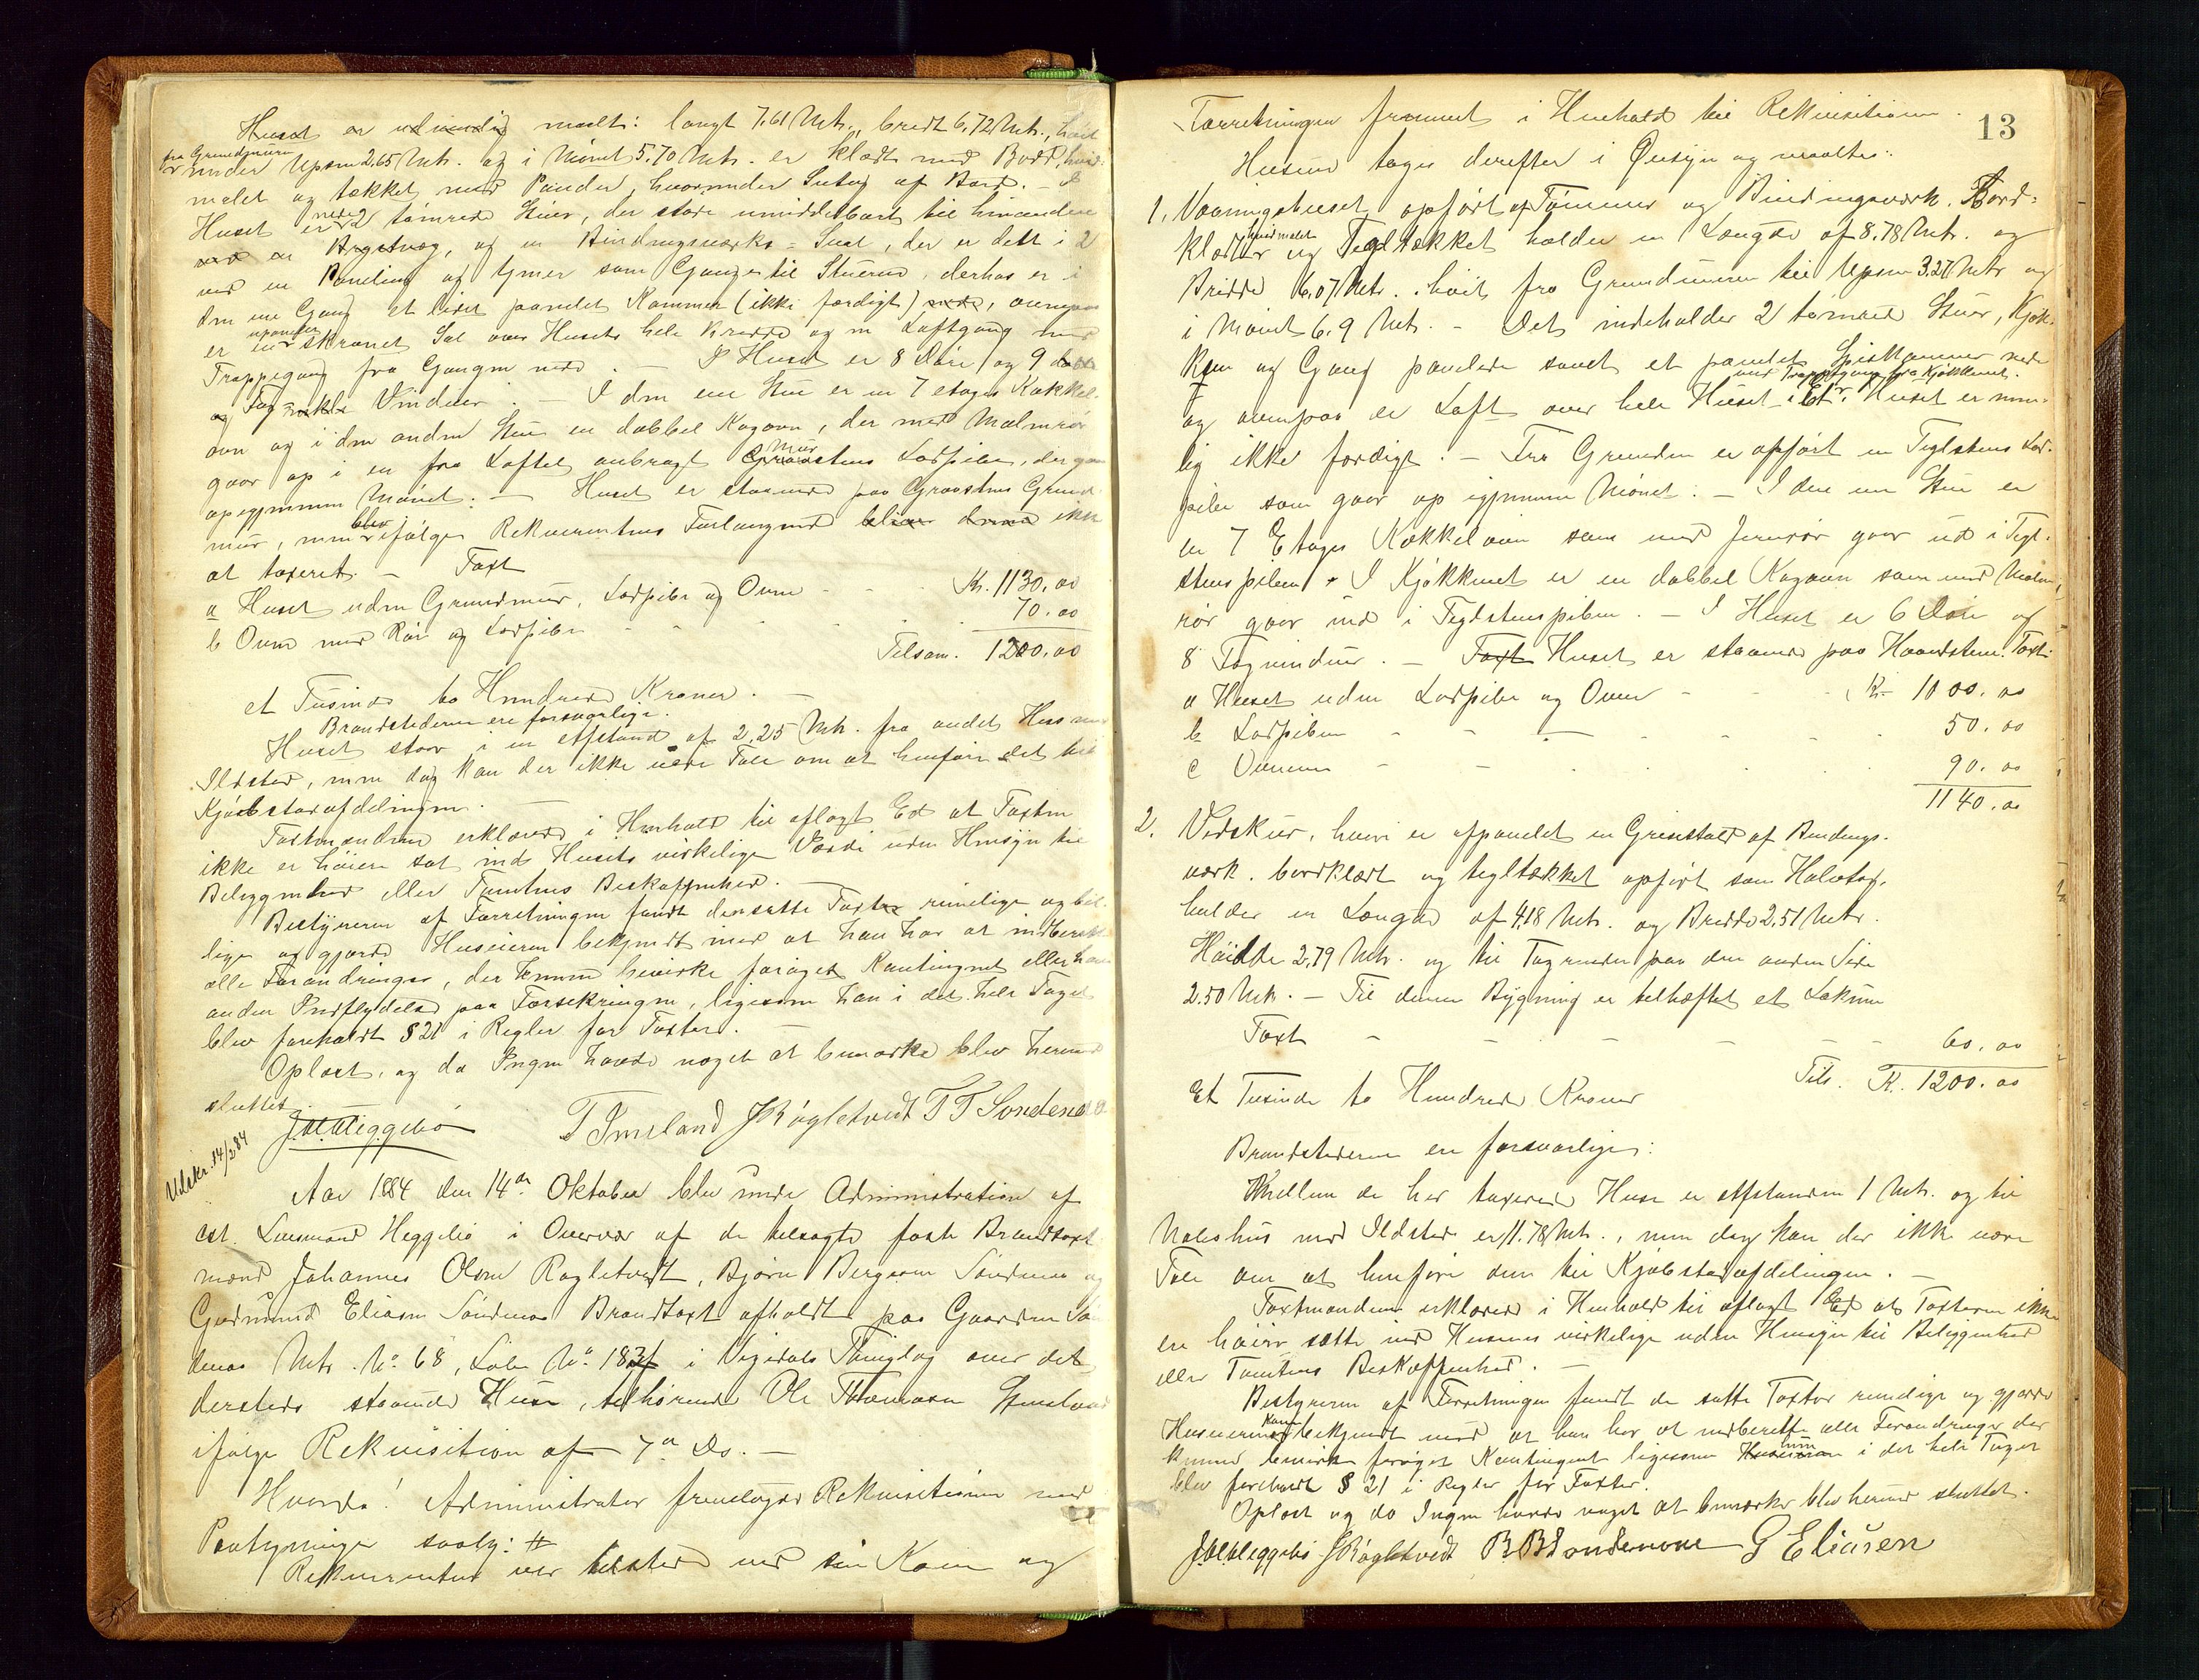 Huset er udvendig maalt: langt 7.61 Mtr., bredt 6.72 Mtr., høit
fra Grundmuren
under Upsen 2.65 Mtr. og i Mønet 5.70 Mtr. er klædt med Bord, hvid-
malet og tækket med Pander, hvorunder Sutag af Bord. - I
Huset er nede 2 tømrede Stuer, der støde umiddelbart til hinanden
ved en og en Bindingsværks-Sval, der er delt i 2
ved en Paneling og tjener som Gange til Stuerne, derhos er i
den ene Gang et lidet panelet Kammer (ikke færdigt) , ovenpaa
er en upanelet Sal over Husets hele Bredde og en Loftgang med
Trappegang fra Gangen nede. - I Huset er 8 Døre og 9
og Fag Vinduer. - I den ene Stue er en 7 etages Kakkel-
ovn og i den anden Stue en dobbel Kogovn, der med Malmrør
gaar op i en fra Loftet anbragt Murstens Lodpibe, der gaar
op igjennem Mønet. - Huset er staaende paa Graastens Grund-
mur, men blev ifølge Rekvirentens Forlangende ikke
at taxeret. - Taxt
a Huset uden Grundmur, Lodpibe og Ovne - - Kr. 1130.00
b Ovne med Rør og Lodpibe - - - 70.00
Tilsam. 1200.00
et Tusinde to Hundrede Kroner. -
Brandstederne ere forsvarlige.
Huset staar i en Afstand af 2,25 Mtr. fra andet Hus med
Ildsted, men dog kan der ikke være Tale om at henføre det til
Kjøbstadafdelingen. -
Taxtmændene erklærede i Henhold til aflagt Ed at Taxten
ikke er høiere sat end Husets virkelige Værdi uden Hensyn til
Beliggenhed eller Tomtens Beskaffenhed. -
Bestyreren af Forretningen fandt den satte Taxt rimelig og bil-
lig og gjorde Huseieren bekjendt med at han har at indberette
alle Forandringer, der kunne bevirke forøget Kontingent eller have
anden Indflydelse paa Forsikringen, ligesom han i det hele Taget
blev foreholdt § 21 i Regler for Taxter.
Oplæst, og da Ingen havde noget at bemærke blev hermed
sluttet.
J.H. Heggebø T Imsland J Røgletvedt T T Søndenaa
Udskr. 14/2 84
Aar 1884 den 14de Oktober blev under Administration af
cst. Lensmand Heggebø i Overvær af de tilsagte faste Brandtaxt-
mænd Johannes Olsen Røgletvedt, Bjørn Bergesen Søndenaa og
Gudmund Eliasen Søndenaa Brandtaxt afholdt paa Gaarden Søn-
denaa Mtr. No. 68, Løbe No. i Vigedals Thinglag over det
dersteds staaende Huse, tilhørende Ole Thomasen Imsland
ifølge Rekvisition af 7de Ds. -
Hvorda! Administrator fremlagde Rekvisitionen med
Paategninger saalg: #
Rekvirenten var tilstede ved sin Kone og
13
Forretningen fremmet i Henhold til Rekvisitionen.
Husene toges derefter i Øiesyn og maaltes:
1. Vaaningshuset opført af Tømmer og Bindingsværk. Bord-
klædt hvidmalet og Tegltækket holder en Længde af 8.78 Mtr. og
Bredde 6.07 Mtr., høit fra Grundmuren til Upsen 3.27 Mtr. og
i Mønet 6.9 Mtr. - Det indeholder 2 tømrede Stuer, Kjøk-
ken og Gang panelede samt et panelet Spiskammer nede
med Trappegang fra Kjøkkenet.
og ovenpaa er Loft over hele Huset. Huset er nem-
lig ikke færdigt. - Fra Grunden er opført en Teglstens Lod-
pibe som gaar op igjennem Mønet. - I den ene Stue er
en 7 Etages Kakkelovn som med Jernrør gaar ud i Tegl-
stenspiben. I Kjøkkenet er en dobbel Kogovn som med Malm-
rør gaar ind i Teglstenspiben. - I Huset er 6 Døre og
8 Fagvinduer. - Taxt Huset er staaende paa Haandsten. Taxt
a Huset uden Lodpibe og Ovne - - Kr. 1000.00
b Lodpiben - - - - - 50.00
c Ovnene - - - - - 90.00
1140.00
2. Vedskur, hvori er afpanelet en Grisestald af Bindings-
værk. bordklædt og tegltækket opført som Halvtag,
holder en Længde af 4,18 Mtr. og Bredde 2,51 Mtr.
Høide 2,79 Mtr. og til Tagrenden paa den anden Side
2.50 Mtr. - Til denne Bygning er tilhæftet et Lokum
Taxt - - - - - 60.00
Tils. K. 1200.00
Et Tusinde to Hundrede Kroner
Brandstederne ere forsvarlige:
Mellem de her taxerede Huse er Afstanden 1 Mtr. og til
Nabohus med Ildsted er 11.78 Mtr., men dog kan der ikke være
Tale om at henføre dem til Kjøbstadafdelingen. -
Taxtmændene erklærede i Henhold til aflagt Ed at Taxterne ikke
ere høiere satte end Husenes virkelige uden Hensyn til Beliggenhed
eller Tomtens Beskaffenhed. -
Bestyreren af Forretningen fandt de satte Taxter rimelige og gjorde
Huseierens Kone bekjendt med at han har at indberette alle Forandringer der
kunne bevirke forøget Kontingent ligesom hun i det hele Taget
blev foreholdt § 21 i Regler for Taxter.
Oplæst og da Ingen havde noget at bemærke blev hermed sluttet.
J.H. Heggebø J Røgletvedt B B Søndenaa G Eliasen